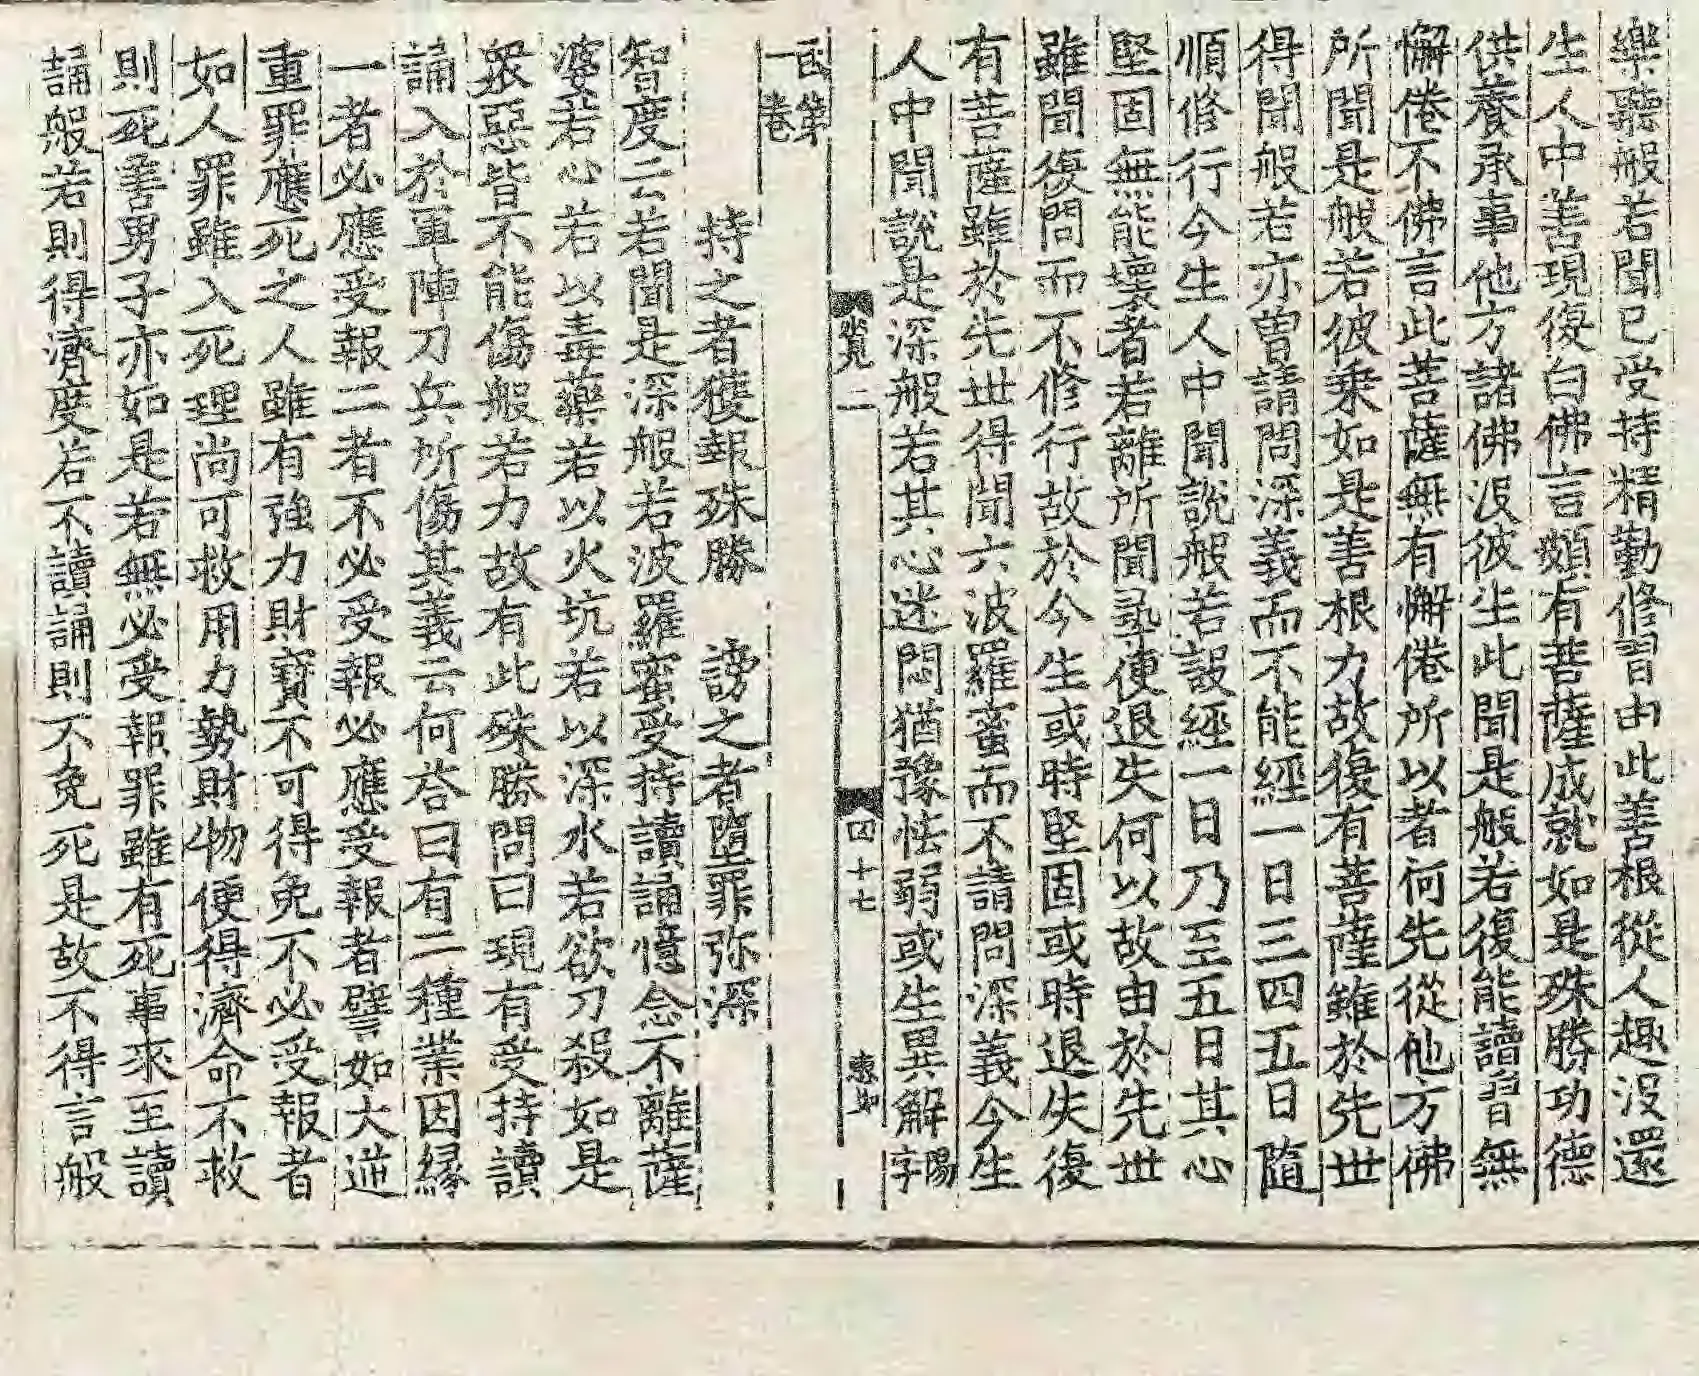 樂聽般若聞已受持精勤修習由此善根從人趣沒還
生人中善現復白佛言頗有菩薩成就如是殊勝功德
供養承事他方諸佛沒彼生此聞是般若復能讀習無
懈倦不佛言此菩薩無有懈倦所以者何先從他方佛
所聞是般若彼乘如是善根力故復有菩薩雖於先世
得聞般若亦曽請問深義而不能經一日三四五日隨
順修行今生人中聞說般若設經一日乃至五日其心
堅固無能壞者若離所聞尋便退失何以故由於先世
雖聞復問而不修行故於今生或時堅固或時退失復
有菩薩雖於先世得聞六波羅蜜而不請問深義今生
人中聞說是深般若其心迷悶猶豫怯弱或生異解
四十七
持之者獲報殊勝　謗之者墮罪弥深
智度云若聞是深般若波羅蜜受持讀誦憶念不離薩
婆若心若以毒藥若以火坑若以深水若欲刀殺如是
衆惡皆不能傷般若力故有此殊勝問曰現有受持讀
誦入於軍陣刀兵所傷其義云何荅曰有二種業因緣
一者必應受報二者不必受報必應受報者譬如大逆
重罪應死之人雖有強力財寶不可得免不必受報者
如人罪雖入死理尚可救用力勢財物便得濟命不救
則死善男子亦如是若無必受報罪雖有死事來至讀
誦般若則得濟度若不讀誦則不免死是故不得言般